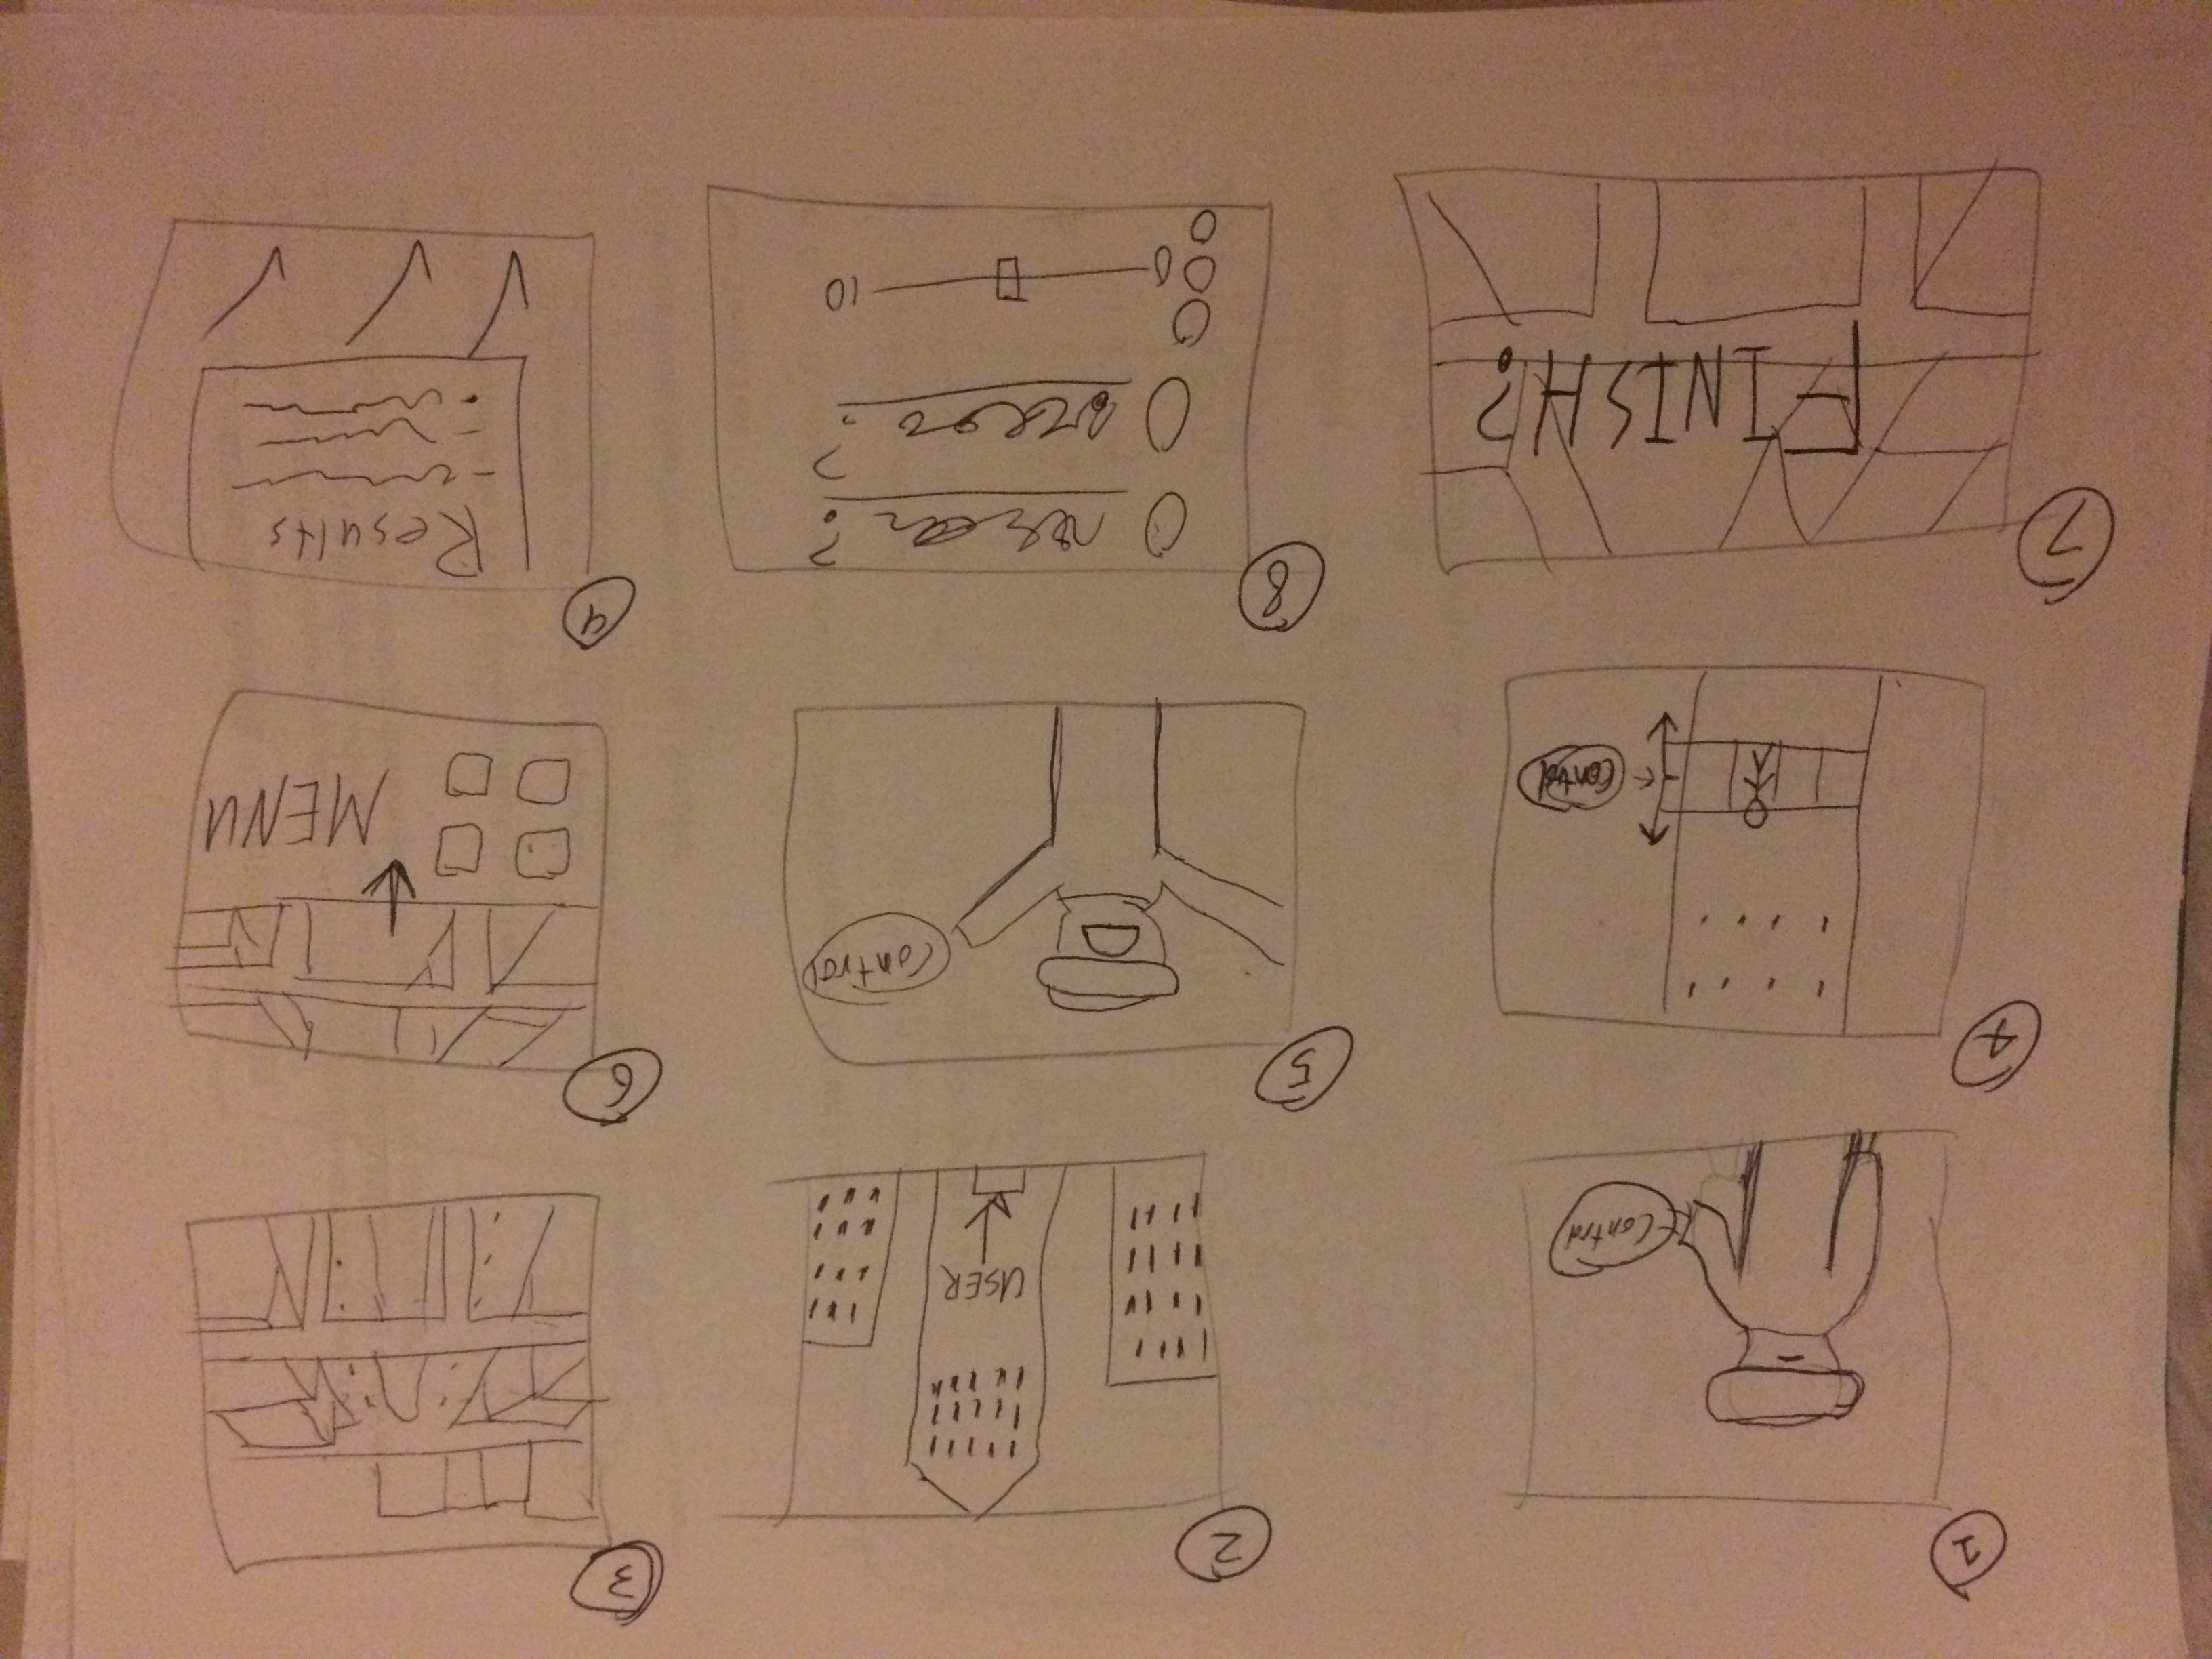 1
Control
2
USER
3
4
Control
5
Control
6
MENU
7
FINISH?
8
?
?
0
10
9
Results